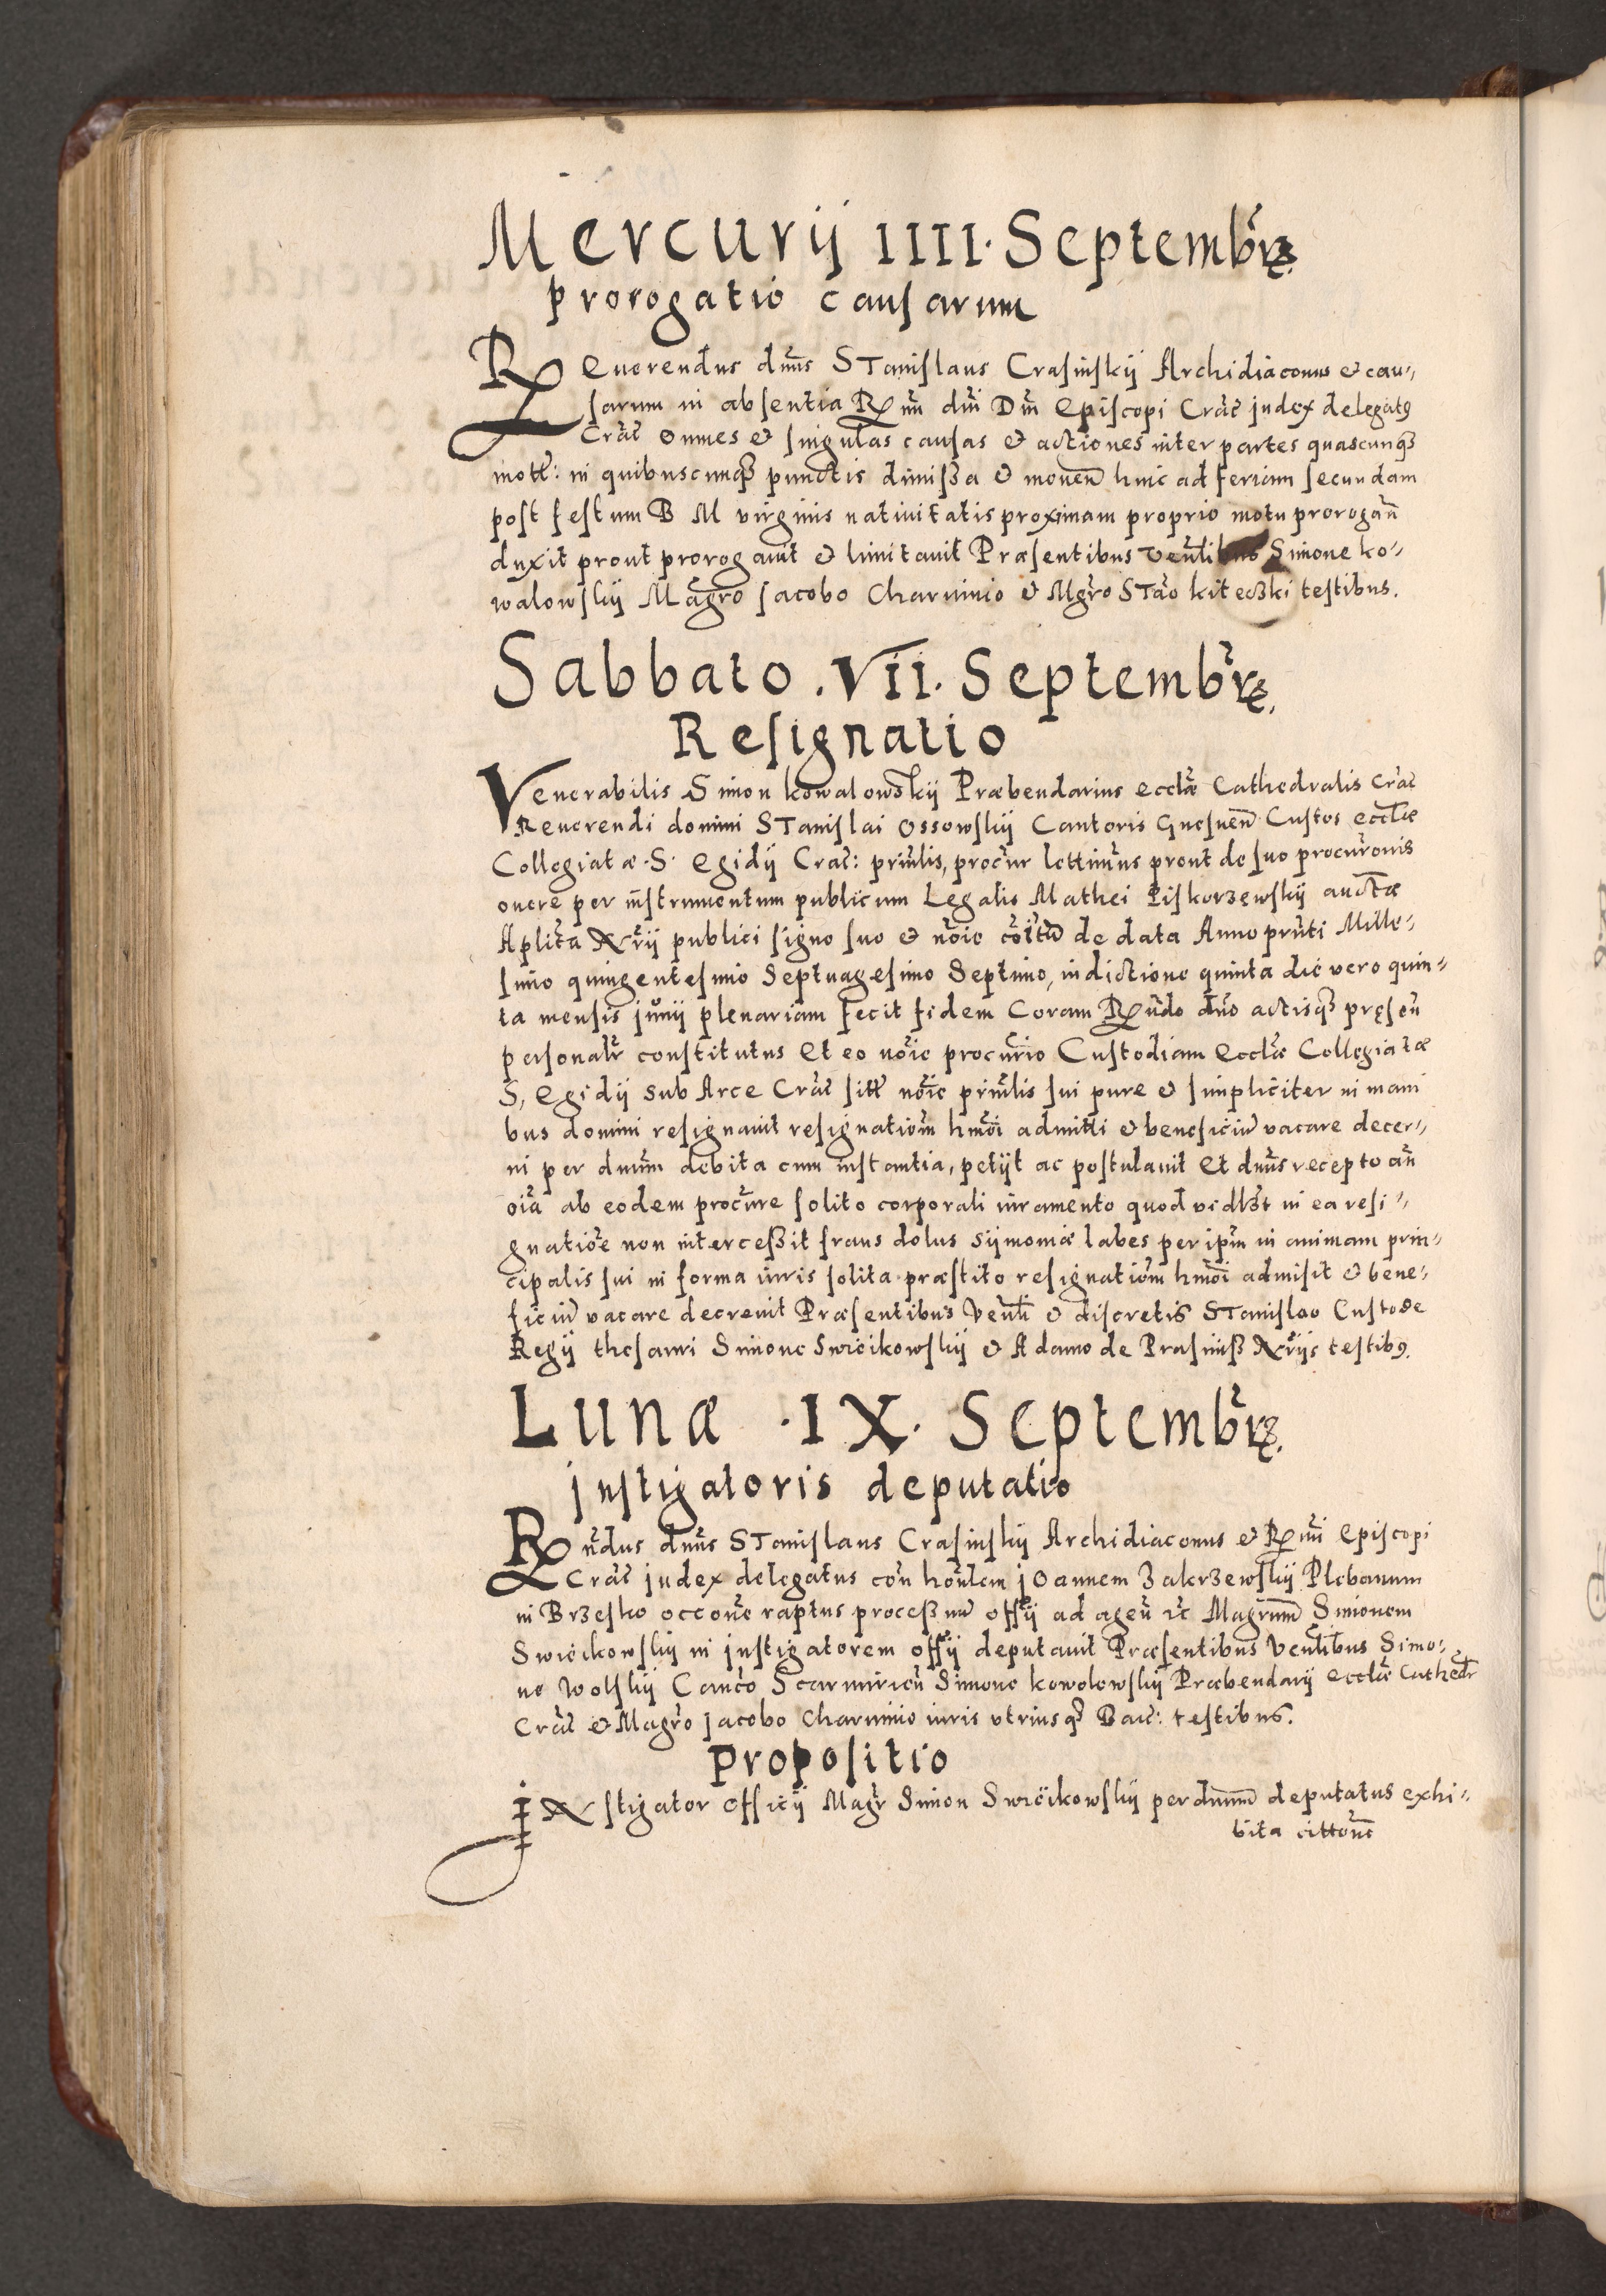 Mercurÿ IIII. Septembrꝭ
prorogatio causarum
Reuerendus dnus STanislaus Crasinskÿ Archidiaconus et cau-
sarum in absentia Rmi dni Dni Episcopi Crac judex delegatꝰ
Crac Omnes et singulas causas et actiones inter partes quascunqꝫ
mott: in quibuscunqꝫ punctis dimissa et mouen huic ad feriam secundam
post festum B M virginis natiuitatis proximam proprio motu prorogan
duxit prout prorogauit et limitauit Præsentibus venlibus Simone ko-
walowskÿ Magro Jacobo Charuinio et Mgro STao kiteczki testibus.
Sabbato .VII. Septembrꝭ
Resignatio
Venerabilis Simon kowalowskÿ Præbendarius ecclæ Cathedralis Crac
Reuerendi domini STanislai Ossowskÿ Cantoris Gnesnen Custos eccliæ
Collegiatæ .S. Egidÿ Crac: prinlis, procur lettimus prout de suo procuronis
onere per instrumentum publicum Legalis Mathei Piskorzewskÿ auctæ
Aplica Nrÿ publici signo suo et noie coitu de data Anno prnti Mille-
simo quingentesimo Septuagesimo Septimo, indictione quinta die vero quin-
ta mensis junÿ plenariam fecit fidem Coram Rndo dno actisqꝫ pręsen
personalr constitutus Et eo noie procurio Custodiam ecclæ Collegiatæ
S, Egidÿ sub Arce Crac sitt noie prinlis sui pure et simpliciter in mani
bus domini resignauit resignationm hmoi admitti et beneficiu vacare decer-
ni per dnum debita cum instantia, petÿt ac postulauit Et dnus recepto an
oia ab eodem procure solito corporali iuramento quod vidlꝫt in ea resi-
gnatione non intercessit fraus dolus sÿmoniæ labes per ipm in animam prin-
cipalis sui in forma iuris solita præstito resignationm hmoi admisit et bene-
ficiu vacare decreuit Præsentibus Venli et discretis STanislao Custode
Regÿ thesauri Simone Swiëikowskÿ et Adamo de Prasniss Nrÿs testibꝰ.
Lunæ .IX. Septembrꝭ
jnstigatoris deputatio
Rndus dnus STanislaus Crasinskÿ Archidiaconus et Rmi Episcopi
Crac judex delegatus con honlem jOannem Zakrzewskÿ Plebanum
in Brzesko occone raptus processum offÿ ad agen ꝛc Magrum Simonem
Swiëikowskÿ in jnstigatorem offÿ deputauit Præsentibus Venlibus Simo-
ne Wolskÿ Canco Scarmirien Simone kowolowskÿ Præbendarÿ ecclæ Cathedr
Crac et Magro Jacobo Charuinio iuris vtriusqꝫ Bacc: testibus.
Propositio
INstigator Officÿ Magr Simon Swiëikowskÿ per dnum deputatus exhi-
bita cittone